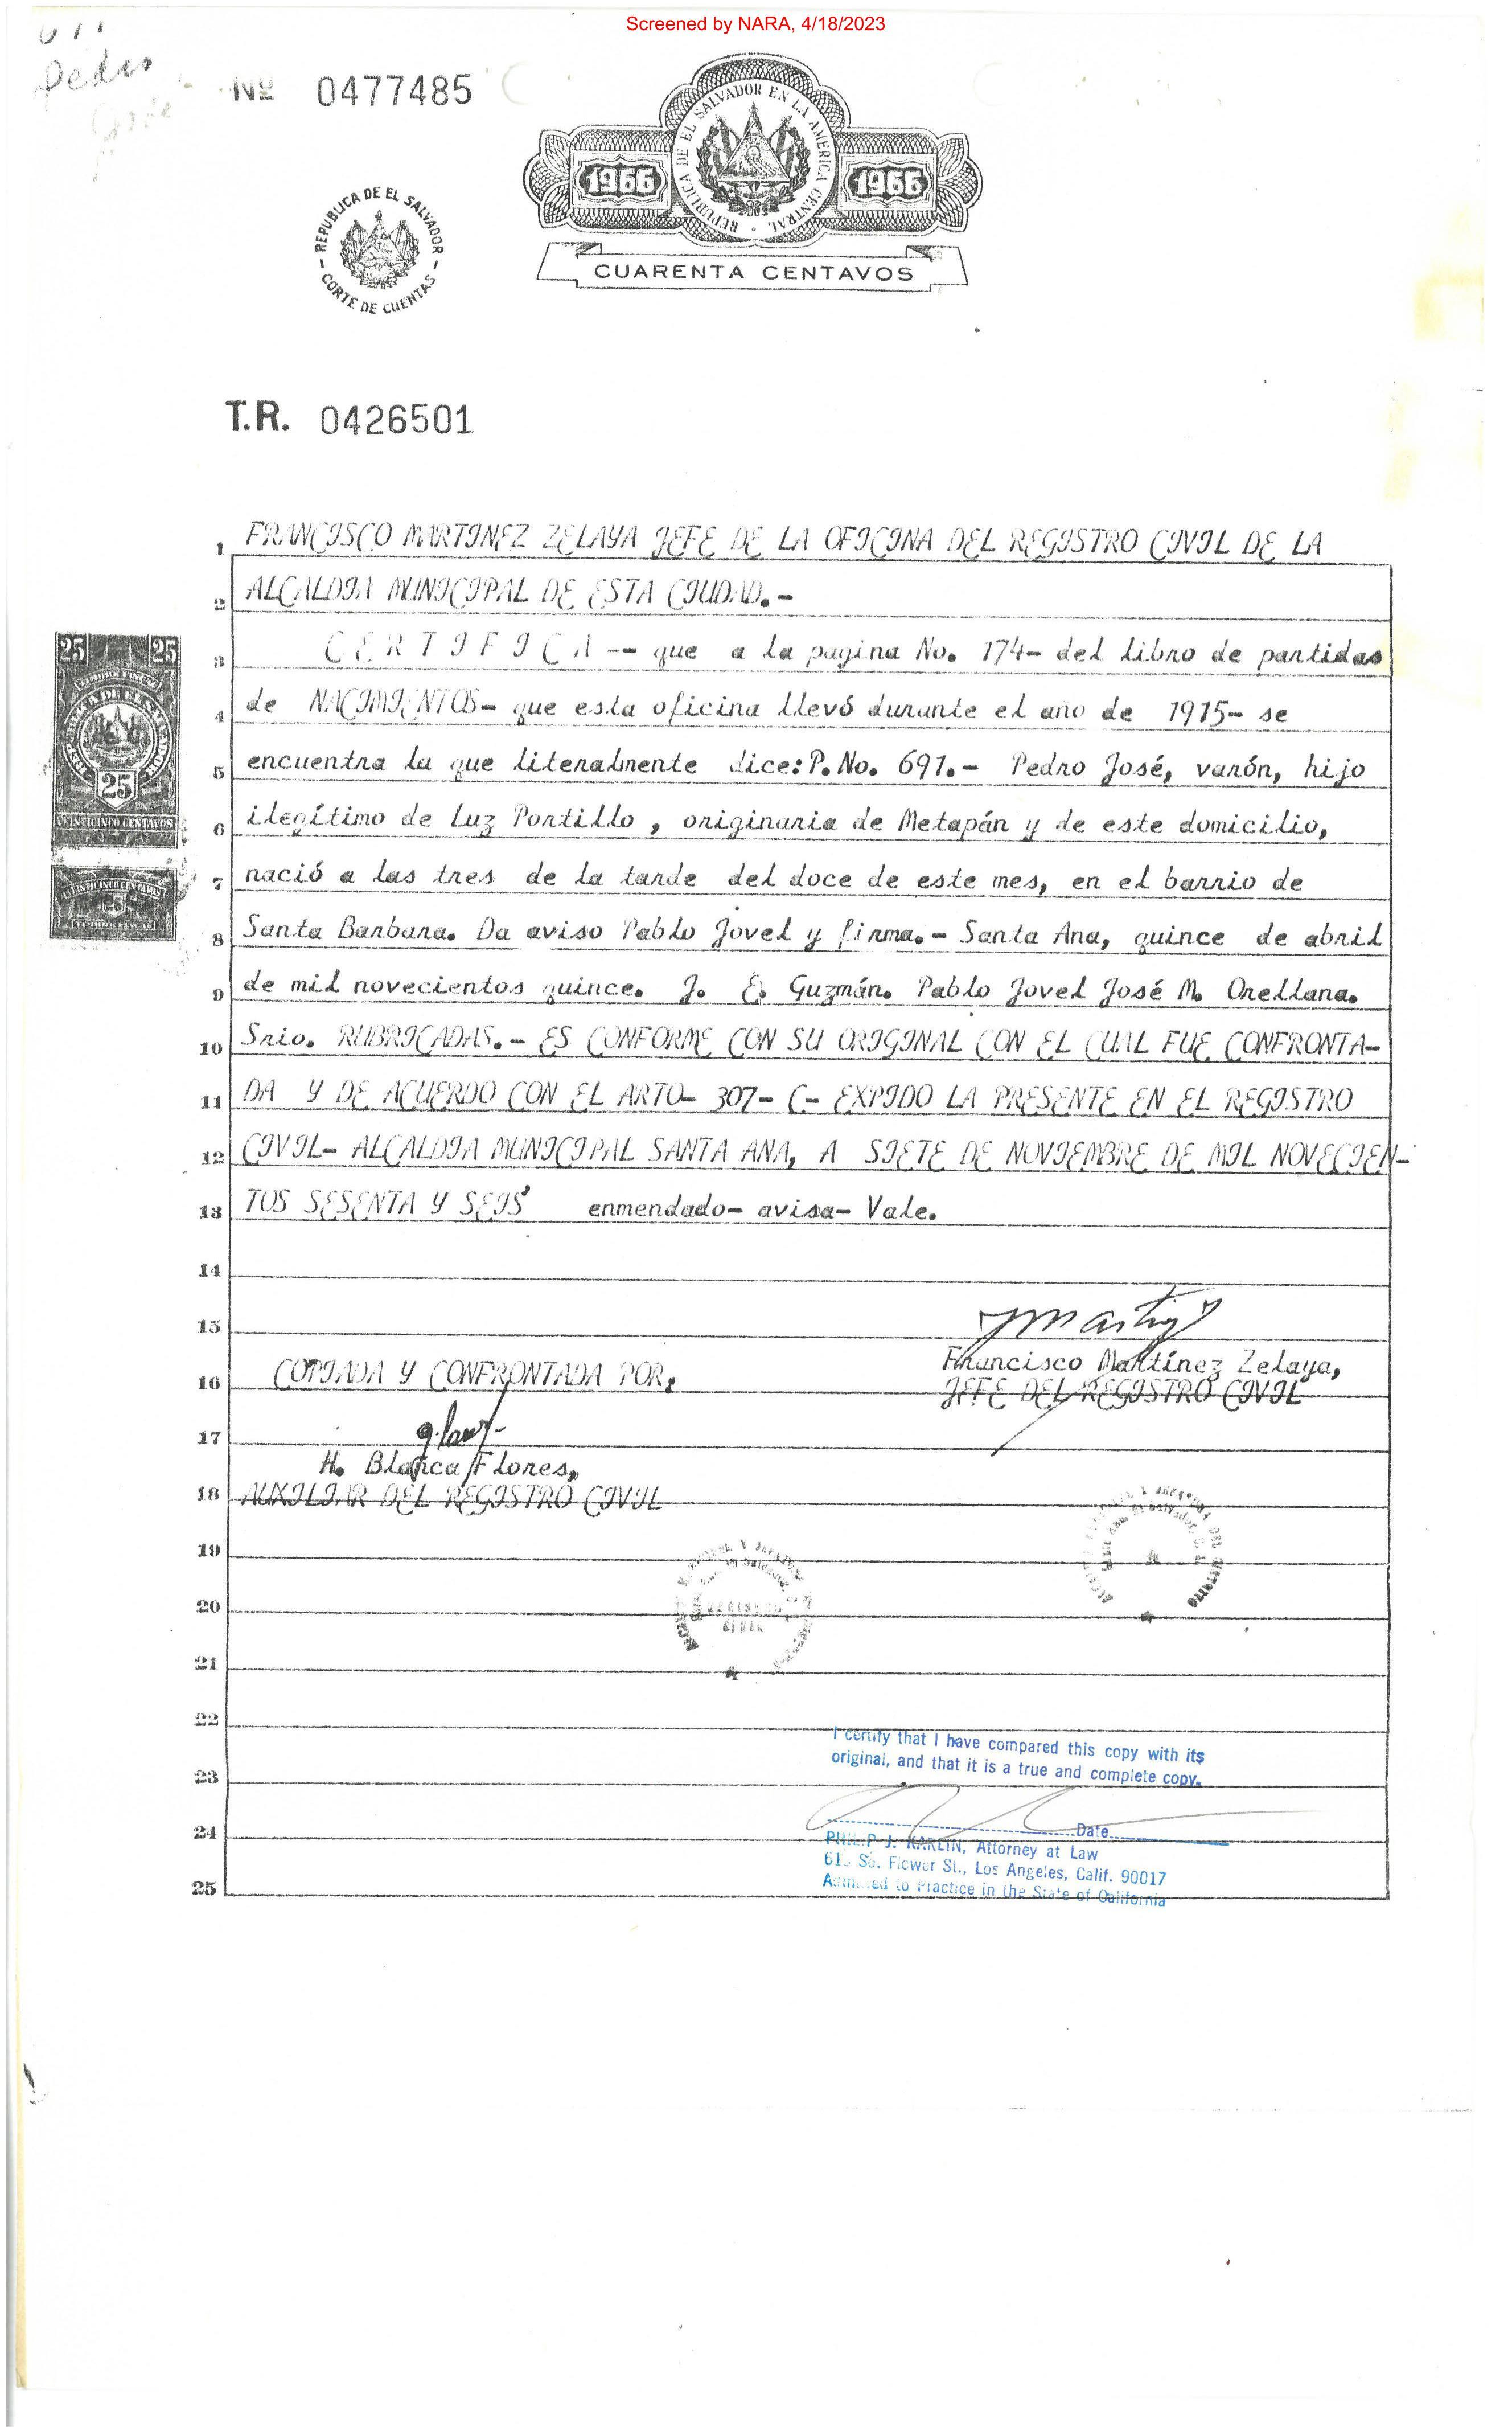 Screened by NARA, 4/18/2023
Pedro
Nº 0477485
REPUBLICA DE EL SALVADOR EN LA AMERICA CENTRAL
1966 1966
CUARENTA CENTAVOS
REPUBLICA DE EL SALVADOR
CORTE DE CUENTAS
T.R. 0426501
1 FRANCISCO MARTINEZ ZELAYA JEFE DE LA OFICINA DEL REGISTRO CIVIL DE LA
2 ALCALDIA MUNICIPAL DE ESTA CIUDAD.-
3 C E R T I F I C A -- que a la pagina No. 174- del libro de partidas
4 de NACIMIENTOS- que esta oficina llevó durante el año de 1915- se
5 encuentra la que literalmente dice: P. No. 691.- Pedro José, varón, hijo
6 ilegítimo de Luz Portillo , originaria de Metapán y de este domicilio,
7 nació a las tres de la tarde del doce de este mes, en el barrio de
8 Santa Barbara. Da aviso Pablo Jovel y firma.- Santa Ana, quince de abril
9 de mil novecientos quince. J. E. Guzmán. Pablo Jovel José M. Orellana.
10 Srio. RUBRICADAS.- ES CONFORME CON SU ORIGINAL CON EL CUAL FUE CONFRONTA-
11 DA Y DE ACUERDO CON EL ARTO- 307- C- EXPIDO LA PRESENTE EN EL REGISTRO
12 CIVIL- ALCALDIA MUNICIPAL SANTA ANA, A SIETE DE NOVIEMBRE DE MIL NOVECIEN-
13 TOS SESENTA Y SEIS enmendado- avisa- Vale.
14
15
Francisco Martínez Zelaya,
16 COPIADA Y CONFRONTADA POR,
JEFE DEL REGISTRO CIVIL
17
H. Blanca Flores,
18 AUXILIAR DEL REGISTRO CIVIL
19
20
21
22
I certify that I have compared this copy with its
original, and that it is a true and complete copy.
23
Date
24
PHILIP J. KARLIN, Attorney at Law
So. Flower St., Los Angeles, Calif. 90017
Admitted to Practice in the State of California
25
25 25
REPUBLICA DE EL SALVADOR
25
VEINTICINCO CENTAVOS
VEINTICINCO CENTAVOS
25